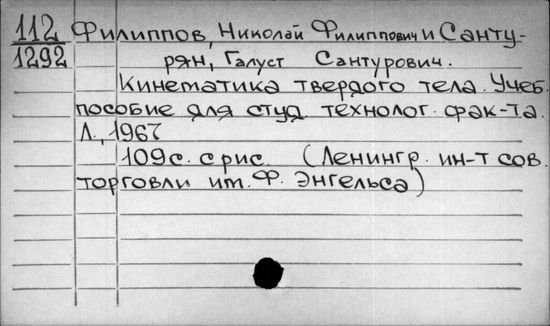 112 Филиппов, Николай Филиппович и Санту-
1292 рян, Галуст Сантурович.
Кинематика твердого тела. Учеб.
пособие для студ. технолог. фак-та.
Л., 1967
109с. с рис. (Ленингр. ин-т сов.
торговли им. Ф. Энгельса)